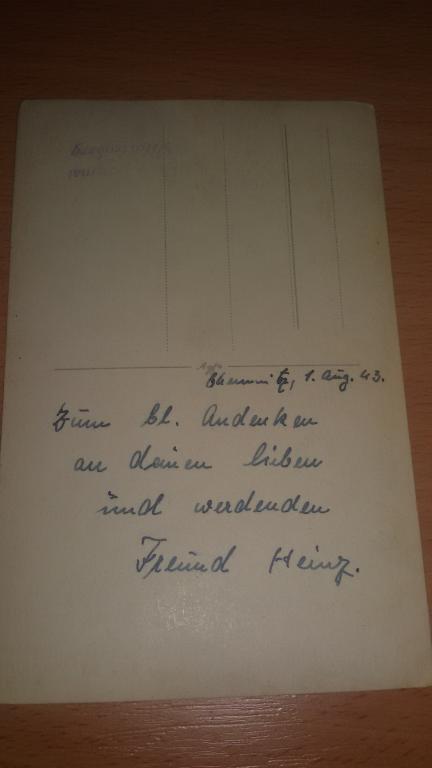 Agfa
Chemnitz, 1. Aug. 43.
Zum bl. Andenken
an deinen lieben
und werdenden
Freund Heinz.